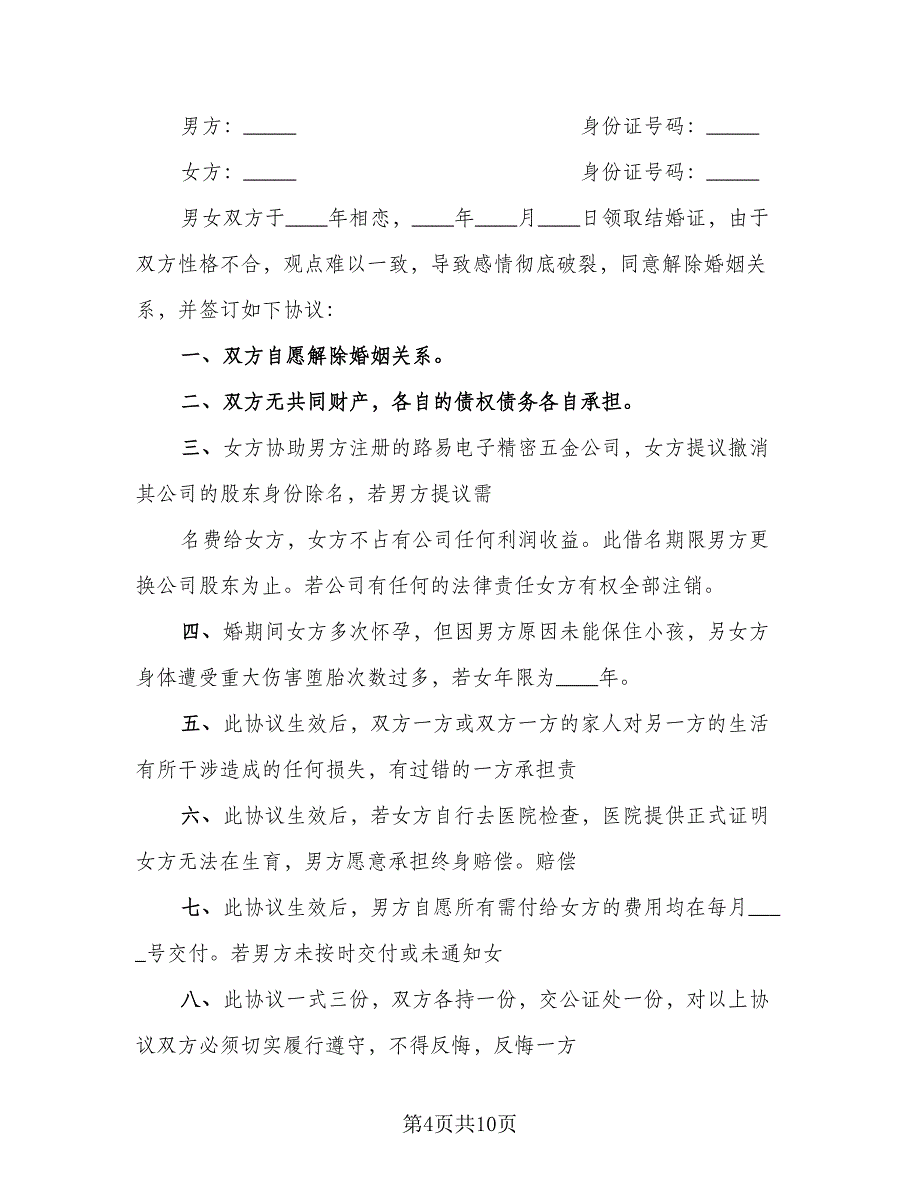 男方：_____ 身份证号码：_____
女方：_____ 身份证号码：_____
男女双方于____年相恋，____年____月____日领取结婚证，由于
双方性格不合，观点难以一致，导致感情彻底破裂，同意解除婚姻关
系，并签订如下协议：
一、双方自愿解除婚姻关系。
二、双方无共同财产，各自的债权债务各自承担。
三、女方协助男方注册的路易电子精密五金公司，女方提议撤消
其公司的股东身份除名，若男方提议需
名费给女方，女方不占有公司任何利润收益。此借名期限男方更
换公司股东为止。若公司有任何的法律责任女方有权全部注销。
四、婚期间女方多次怀孕，但因男方原因未能保住小孩，另女方
身体遭受重大伤害堕胎次数过多，若女年限为____年。
五、此协议生效后，双方一方或双方一方的家人对另一方的生活
有所干涉造成的任何损失，有过错的一方承担责
六、此协议生效后，若女方自行去医院检查，医院提供正式证明
女方无法在生育，男方愿意承担终身赔偿。赔偿
七、此协议生效后，男方自愿所有需付给女方的费用均在每月___
_号交付。若男方未按时交付或未通知女
八、此协议一式三份，双方各持一份，交公证处一份，对以上协
议双方必须切实履行遵守，不得反悔，反悔一方
第4页共10页